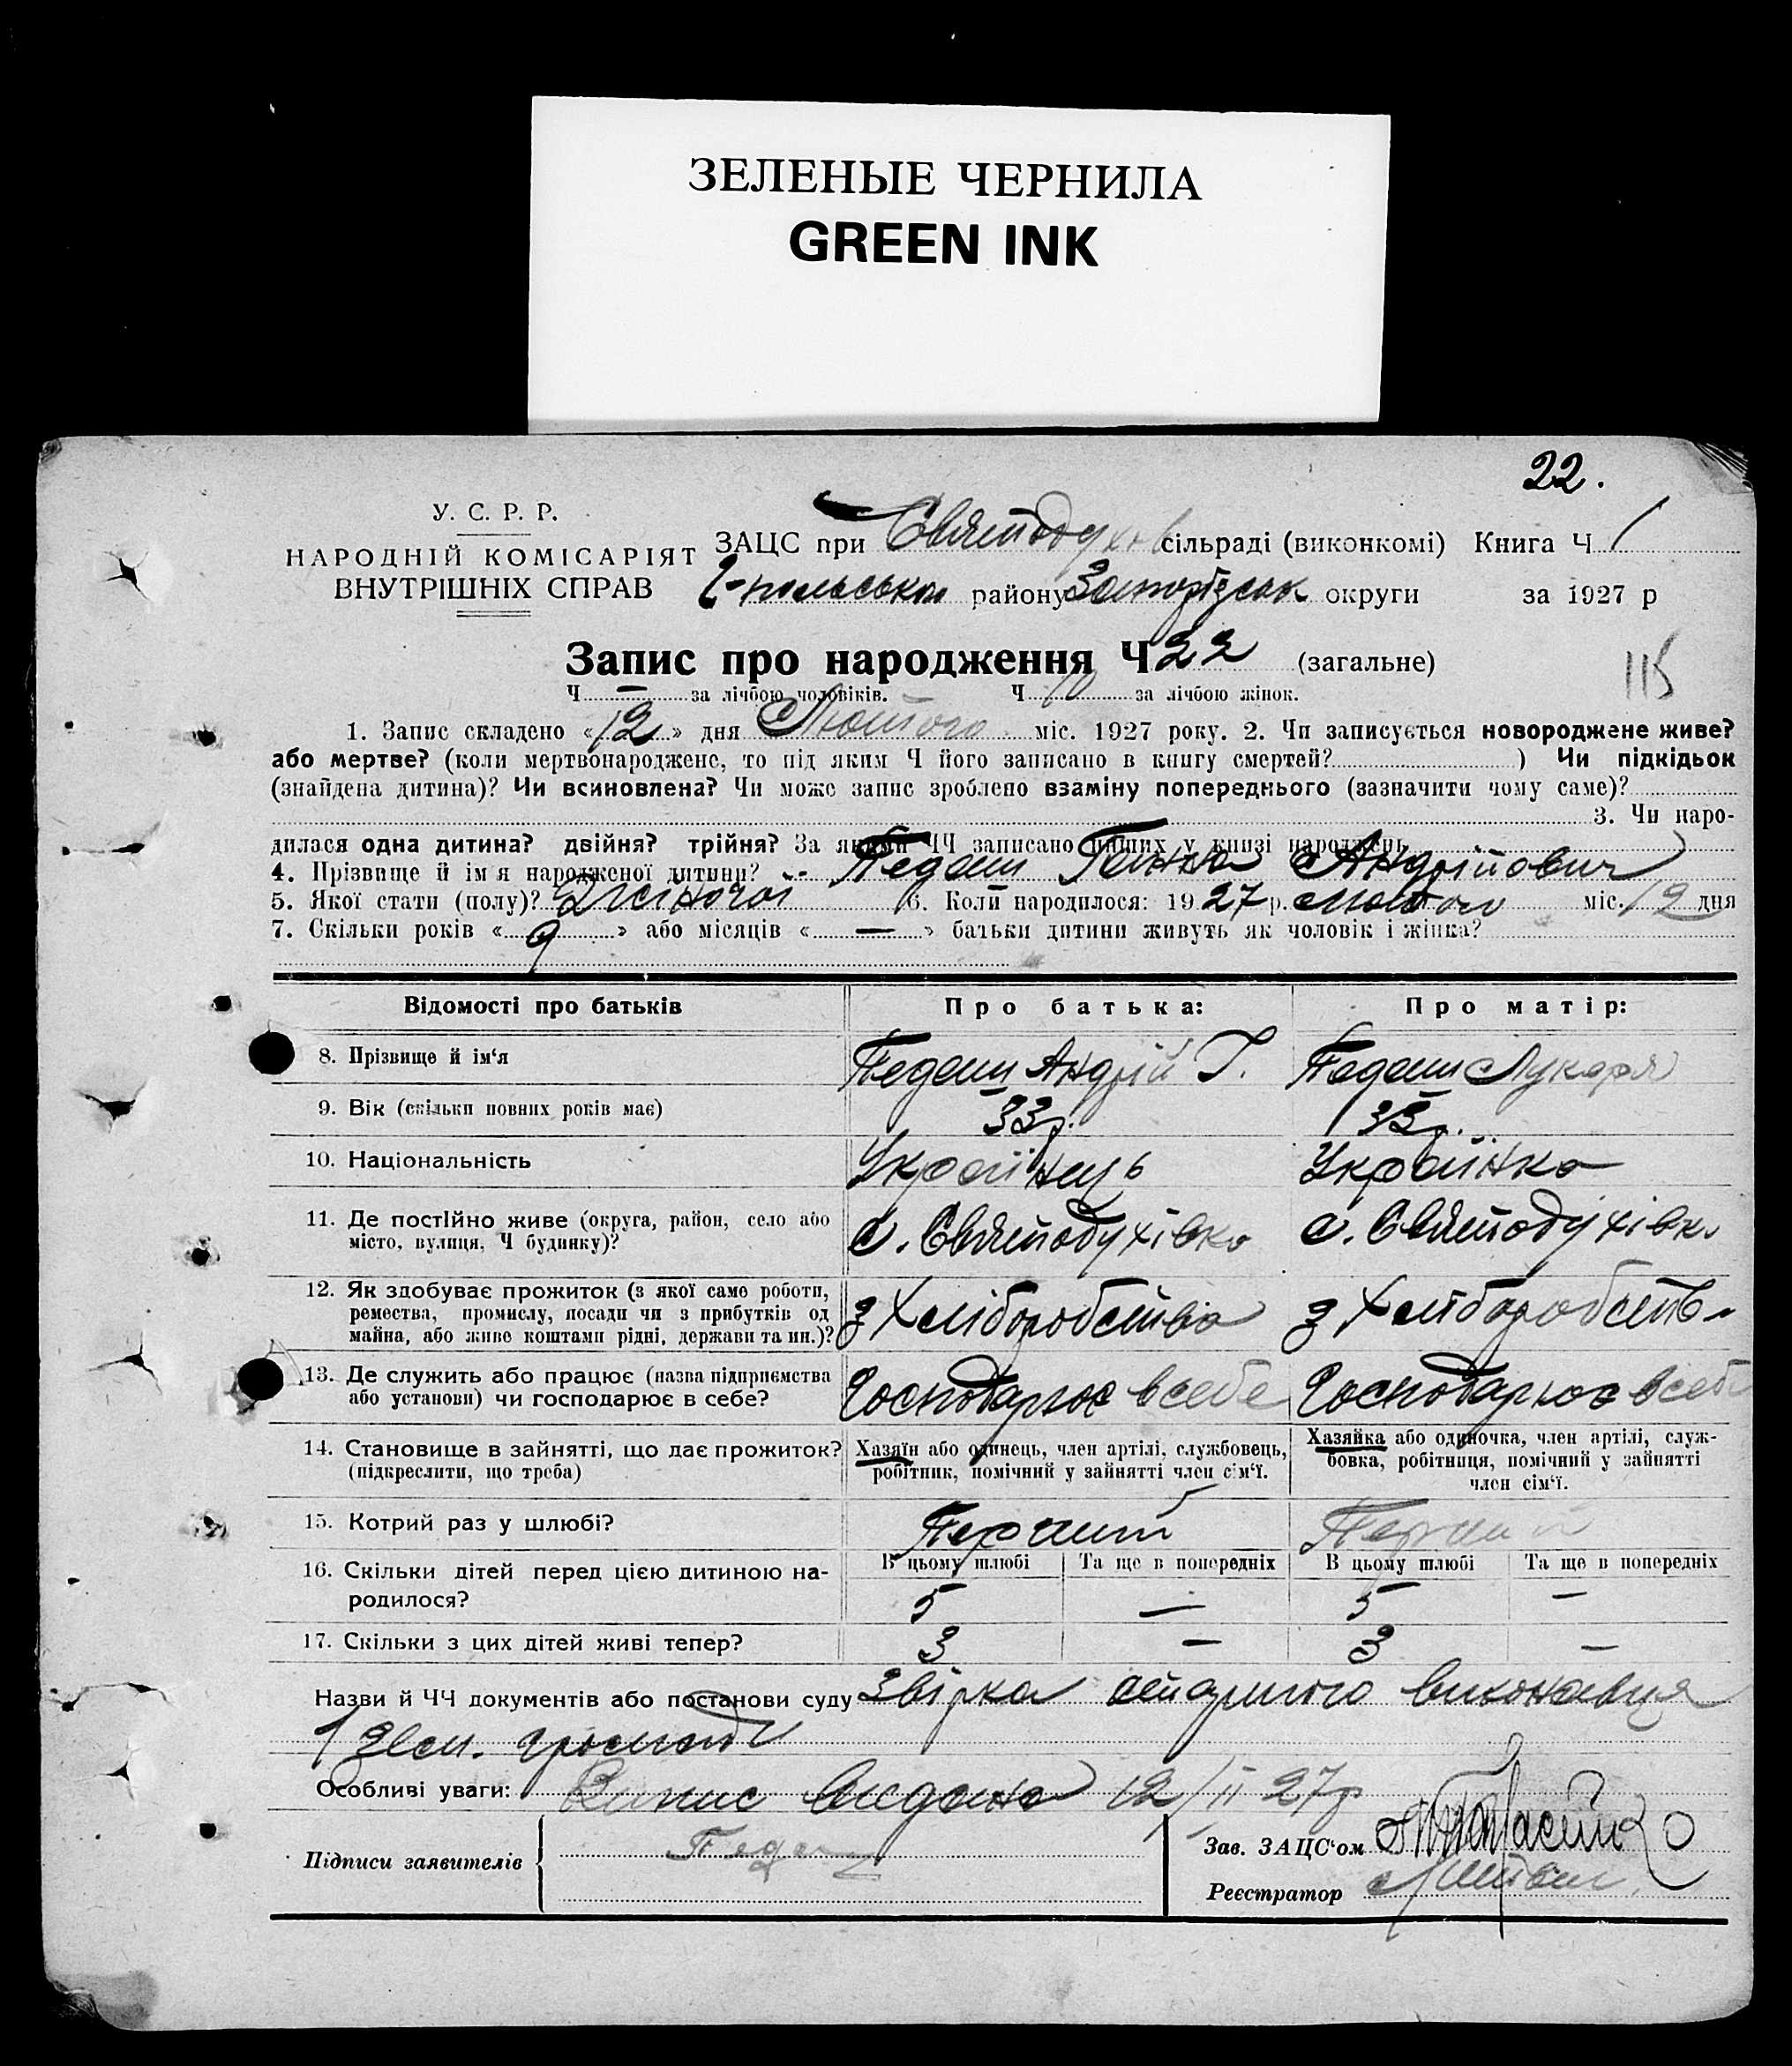 ЗЕЛЕНЫЕ ЧЕРНИЛА
GREEN INK
22.
У. С. Р. Р.
НАРОДНІЙ КОМІСАРІЯТ
ВНУТРІШНІХ СПРАВ
ЗАЦС при Святодухів сільраді (виконкомі) Книга Ч 1
району Запорізськ округи за 1927 р
Запис про народження Ч 22 (загальне)
115
Ч — за лічбою чоловіків. Ч 10 за лічбою жінок.
1. Запис складено «12» дня Лютого міс. 1927 року. 2. Чи записується новороджене живе?
або мертве? (коли мертвонароджене, то під яким Ч його записано в книгу смертей? ) Чи підкідьок
(знайдена дитина)? Чи всиновлена? Чи може запис зроблено взаміну попереднього (зазначити чому саме)?
3. Чи наро-
дилася одна дитина? двійня? трійня? За якими ЧЧ записано инших у книзі народжень
4. Прізвище й ім я народженої дитини? Педаш Ганна Андрійович
5. Якої стати (полу)? Жіночої 6. Коли народилося: 1927 р. Лютого міс. 12 дня
7. Скільки років « 9 » або місяців « — » батьки дитини живуть як чоловік і жінка?
Відомості про батьків Про батька: Про матір:
8. Прізвище й ім‘я Педаш Андрій Г. Педаш Лукеря
9. Вік (скільки повних років має) 33 р. 33 р.
10. Національність Українець Українка
11. Де постійно живе (округа, район, село або
місто, вулиця, Ч будинку)? с. Святодухівка с. Святодухівка
12. Як здобуває прожиток (з якої саме роботи,
ремества, промислу, посади чи з прибутків од
майна, або живе коштами рідні, держави та ин.)? З Хліборобства З Хліборобства
13. Де служить або працює (назва підприємства
або установи) чи господарює в себе? Господарює в себе Господарює в себе
14. Становище в зайнятті, що дає прожиток?
(підкреслити, що треба)
Хазяїн або одинець, член артілі, службовець,
робітник, помічний у зайнятті член сім‘ї.
Хазяйка або одиночка, член артілі, служ-
бовка, робітниця, помічний у зайнятті
член сім‘ї.
15. Котрий раз у шлюбі? Перший Перший
В цьому шлюбі Та ще в попередніх В цьому шлюбі Та ще в попередніх
16. Скільки дітей перед цією дитиною на-
родилося? 5 — 5 —
17. Скільки з цих дітей живі тепер? 3 — 3 —
Назви й ЧЧ документів або постанови суду Звірка старшого виконавця
1 Зем. громади
Особливі уваги: Випис видано 12/II 27р
Підписи заявителів Педаш
Зав. ЗАЦС‘ом
Реєстратор